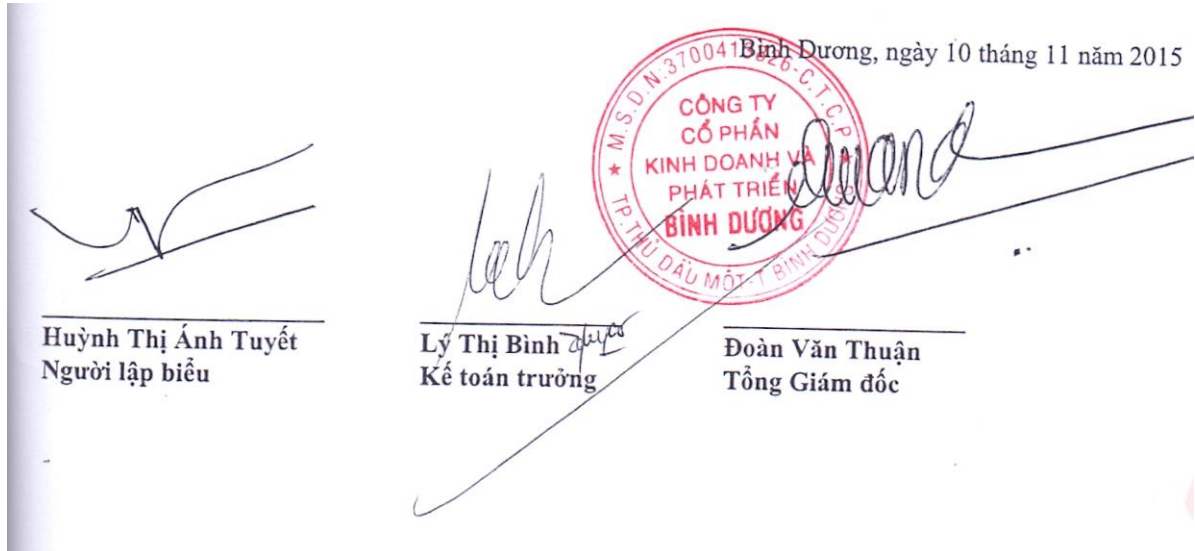 Bình Dương, ngày 10 tháng 11 năm 2015
CÔNG TY
CỔ PHẦN
KINH DOANH VÀ
PHÁT TRIỂN
BÌNH DƯƠNG
★ M.S.D.N:37004 C.T.C.P ★
TP.THỦ DẦU MỘT-T BÌNH DƯƠNG
Huỳnh Thị Ánh Tuyết
Người lập biểu
Lý Thị Bình
Kế toán trưởng
Đoàn Văn Thuận
Tổng Giám đốc